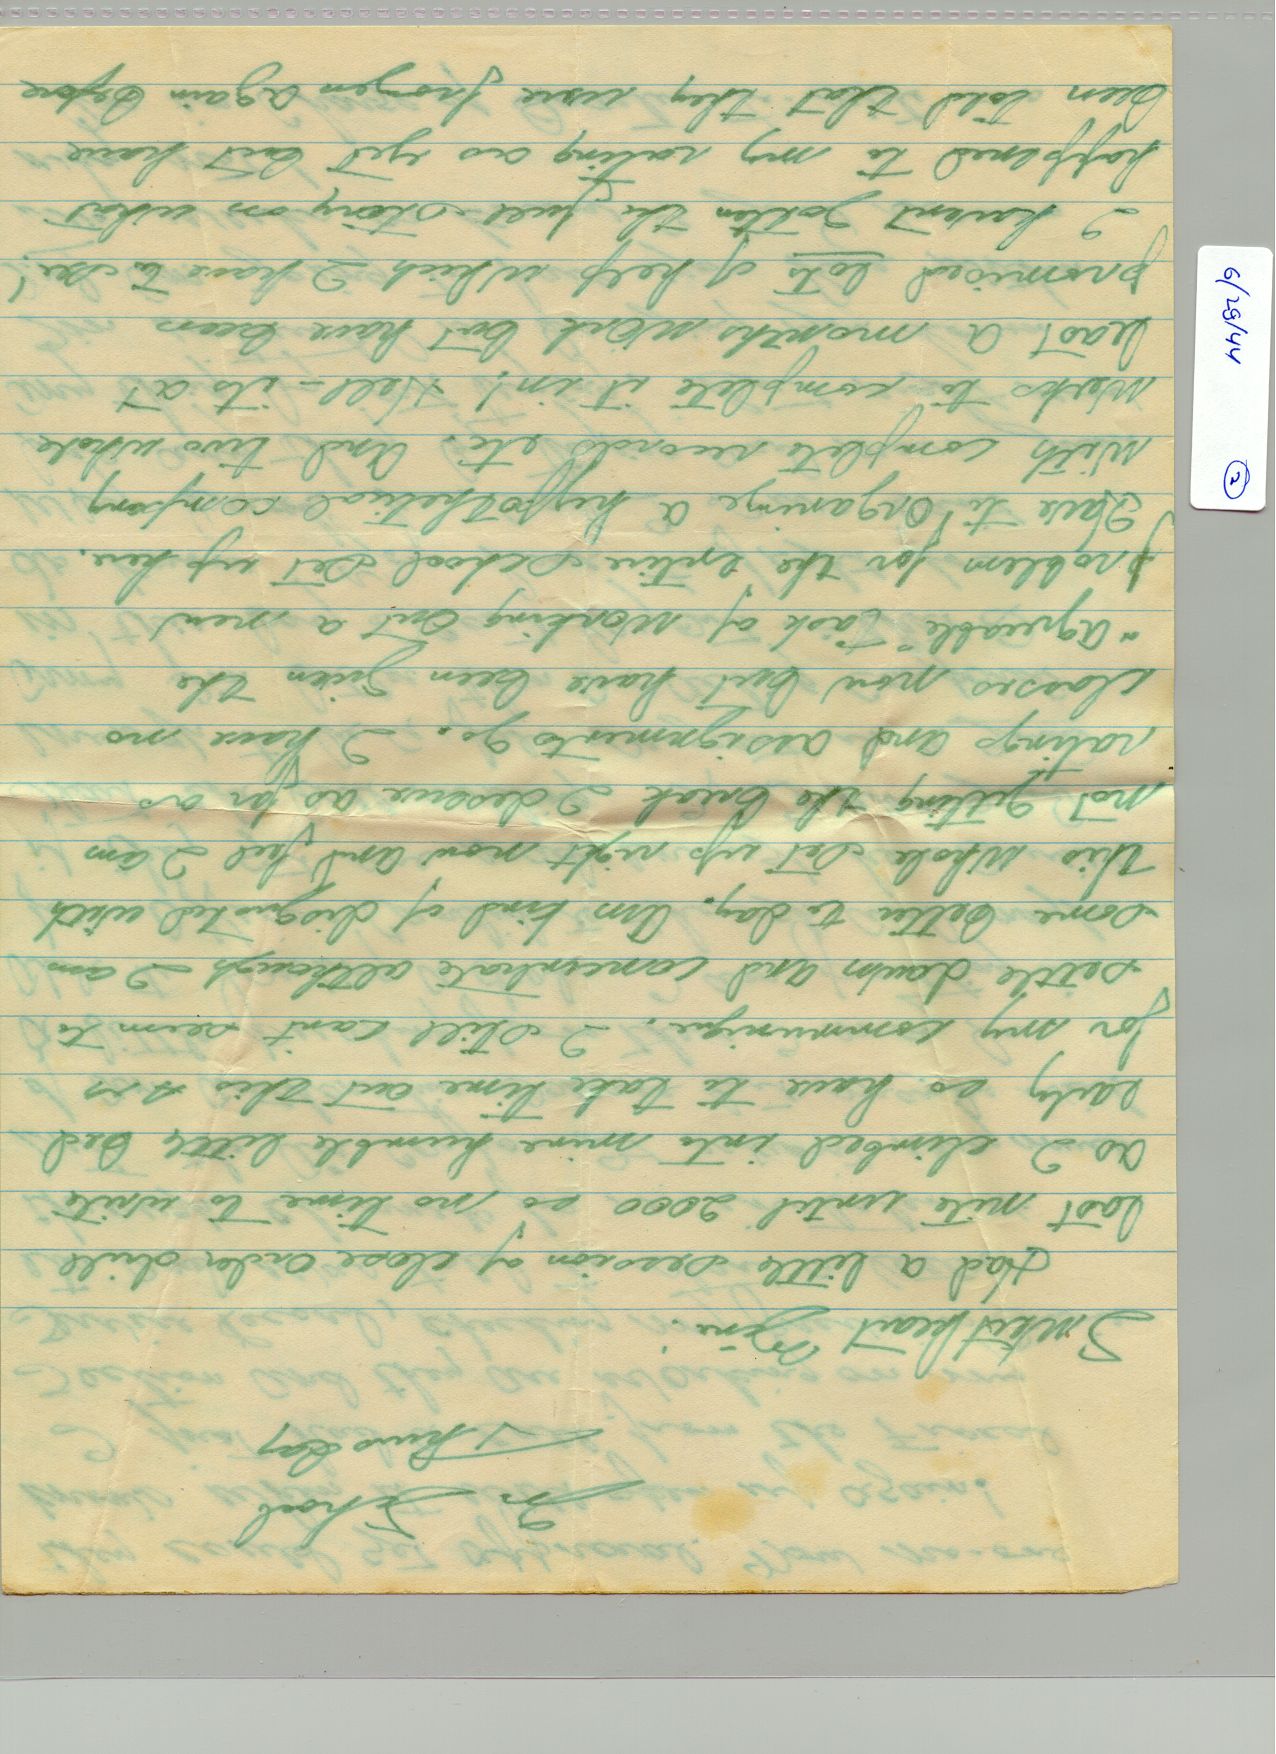 In School
Thursday
Sweetheart Mine:
Had a little session of close order drill
last nite until 2000 so no time to write
as I climbed into mine humble little bed
early so have to take time out this A.M.
for my communique. I still cant seem to
settle down and concentrate although I am
some better to-day. Am kind of disgusted with
this whole set up right now and feel I am
not getting the break I deserve as far as
ratings and assignments go. I have no
classes now but have been given the
"agreeable" task of working out a new
problem for the entire school set up here.
Have to organize a hypothetical company
with complete records etc. and two whole
weeks to complete it in! Hell - its at
least a months work but have been
promised lots of help which I have to see!
I havent gotten the full story on what
happened to my rating as yet but have
been told that they were frozen again before
6/29/44
2